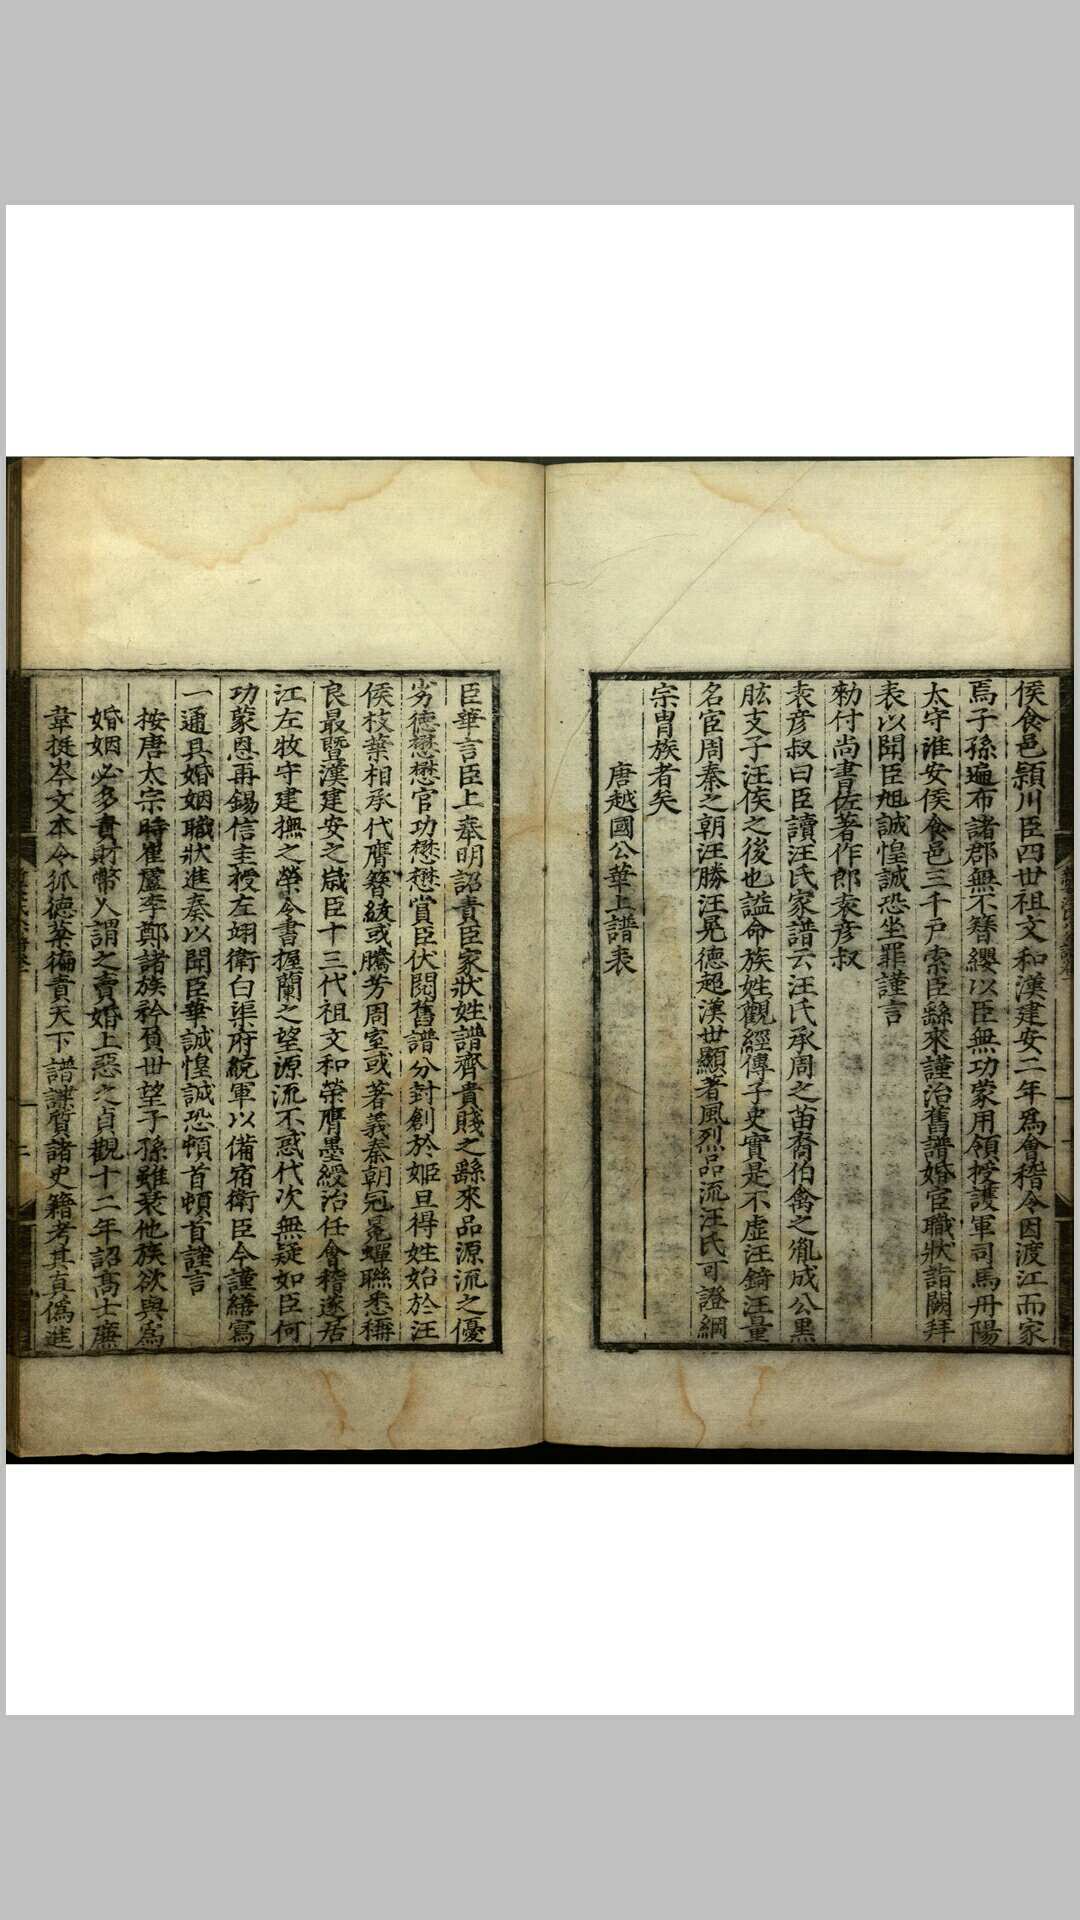 侯食邑潁川臣四世祖文和漢建安二年爲會稽令因渡江而家
焉子孫遍布諸郡無不簪纓以臣無功蒙用領授護軍司馬丹陽
太守淮安侯食邑三千戸索臣繇來謹治舊譜婚宦職狀詣闕拜
表以聞臣旭誠惶誠恐坐罪謹言
勑付尚書佐著作郎袁彦叔
袁彦叔曰臣讀汪氏家譜云汪氏承周之苗裔伯禽之胤成公黒
肱支子汪侯之後也謚命族姓觀經傳子史實是不虚汪錡汪量
名宦周秦之朝汪勝汪晃德超漢世顯著風烈品流汪氏可證綱
宗胄族者矣
唐越國公華上譜表
臣華言臣上奉明詔責臣家狀姓譜齊貴賤之繇來品源流之優
劣德懋懋官功懋懋賞臣伏閱舊譜分封創於姬旦得姓始於汪
侯枝葉相承代膺簪綾或騰芳周室或著義秦朝冠冕蟬聯悉稱
良最暨漢建安之歳臣十三代祖文和榮膺墨綬治任會稽遂居
江左牧守建撫之榮令書握蘭之望源流不惑代次無疑如臣何
功蒙恩再錫信圭授左翊衛白渠府統軍以備宿衛臣今謹繕寫
一通具婚姻職狀進奏以聞臣華誠惶誠恐頓首頓首謹言
按唐太宗時崔盧李鄭諸族矜負世望子孫雖衰他族欲與爲
婚姻必多責財幣人謂之賣婚上惡之貞觀十二年詔髙士亷
韋挺岑文本令狐德棻徧責天下譜諜質諸史籍考其真偽進